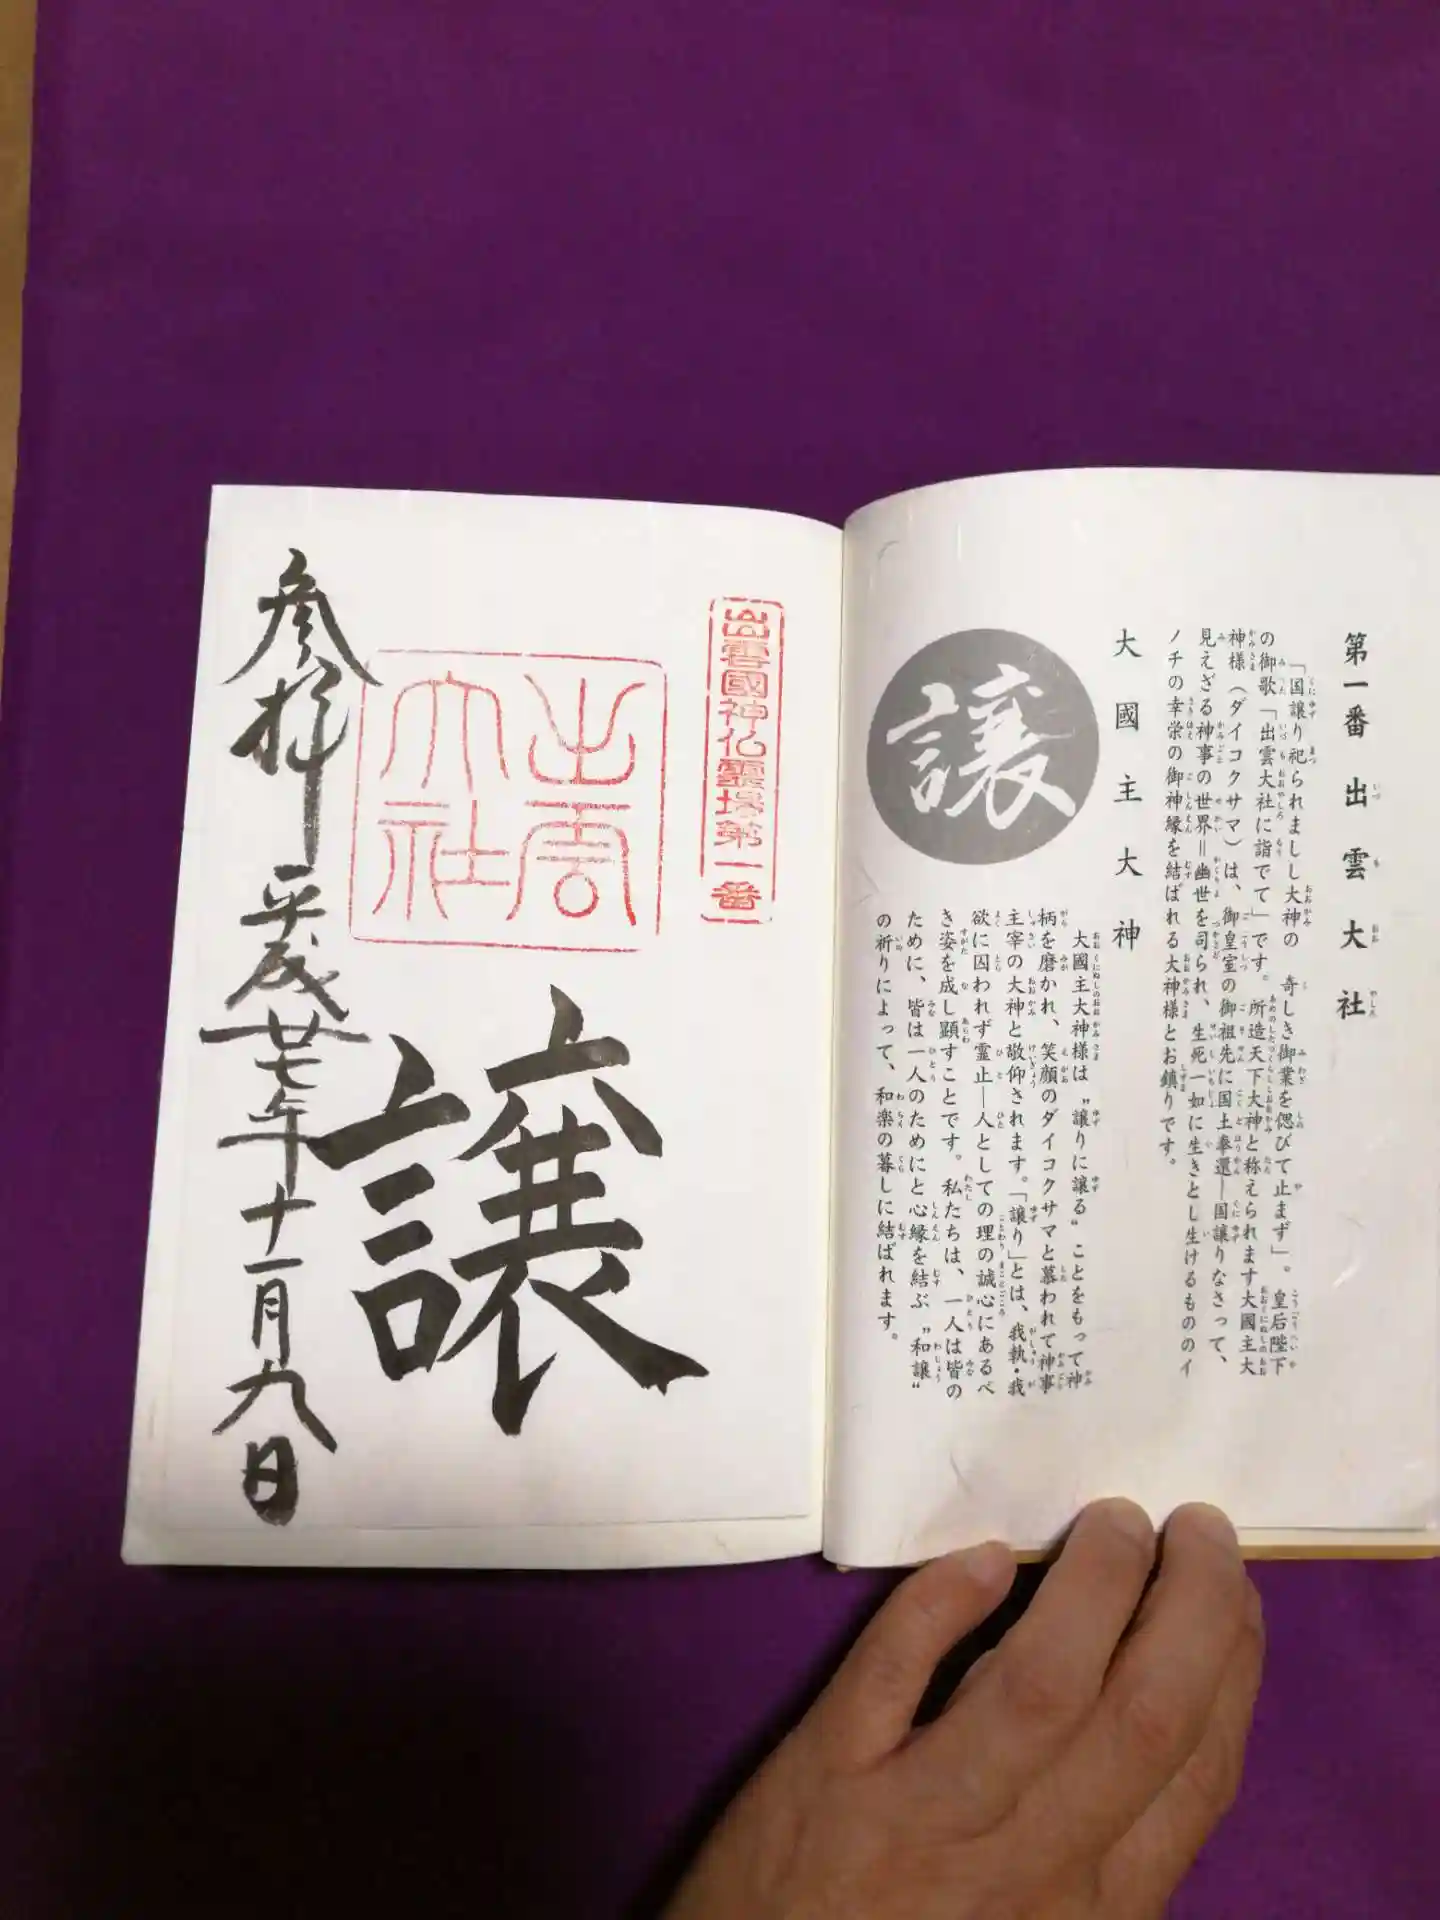 第一番 出雲大社
「国譲り祀られましし大神の 奇しき御業を偲びて止まず」。皇后陛下
の御歌「出雲大社に詣でて」です。所造天下大神と称えられます大國主大
神様(ダイコクサマ)は、御皇室の御祖先に国土奉還―国譲りなさって、
見えざる神事の世界=幽世を司られ、生死一如に生きとし生けるもののイ
ノチの幸栄の御神縁を結ばれる大神様とお鎮りです。
大國主大神
譲
大國主大神様は〝譲りに譲る〟ことをもって神
柄を磨かれ、笑顔のダイコクサマと慕われて神事
主宰の大神と敬仰されます。「譲り」とは、我執・我
欲に囚われず霊止―人としての理の誠心にあるべ
き姿を成し顕すことです。私たちは、一人は皆の
ために、皆は一人のためにと心縁を結ぶ〝和譲〟
の祈りによって、和楽の暮しに結ばれます。
出雲國神仏霊場第一番
出雲
大社
譲
参拝 平成廿七年十一月九日